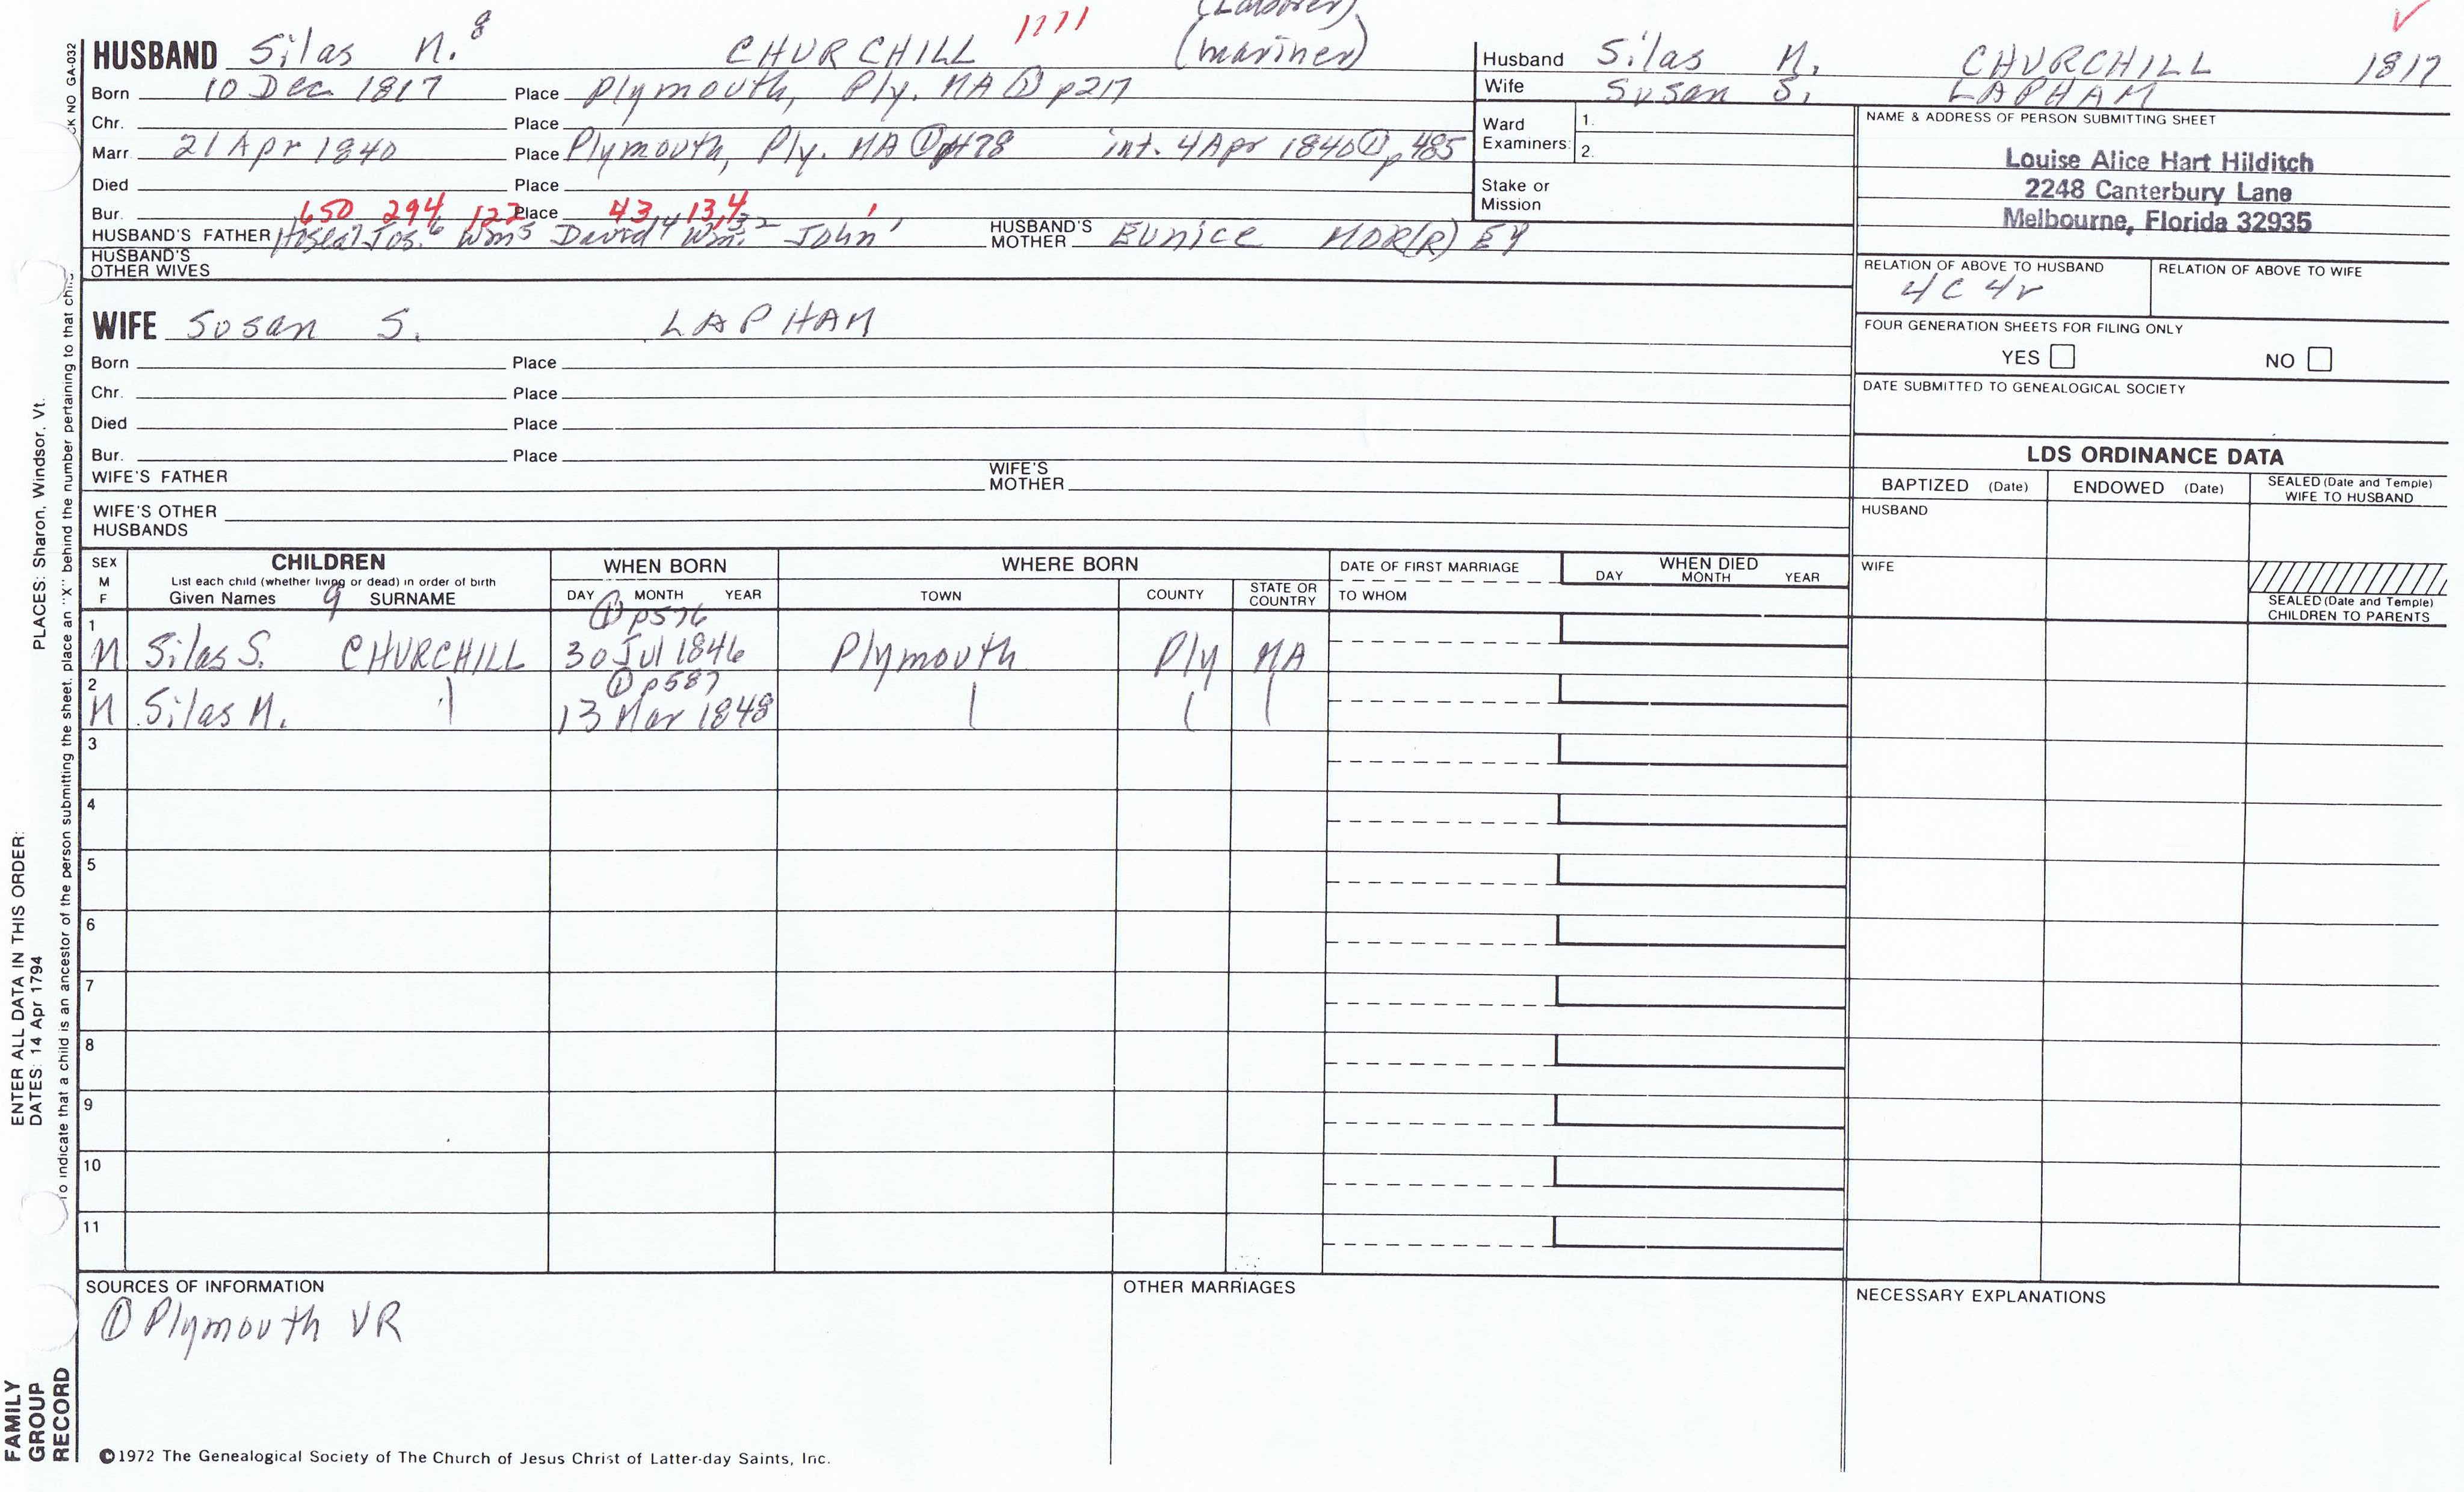 (Laborer)
HUSBAND Silas N.8 CHURCHILL 1771 (mariner)
Born 10 Dec 1817 Place Plymouth, Ply. MA ① p217
Chr. Place
Marr. 21 Apr 1840 Place Plymouth, Ply. MA ① p478 int. 4 Apr 1840 ① p485
Died Place
Bur. Place
650 294 122 43, 13,4 1
HUSBAND'S FATHER Hosea7 Jos.6 Wm5 David4 Wm.3,2 John1 HUSBAND'S MOTHER Eunice MOR(R)EY
HUSBAND'S OTHER WIVES
WIFE Susan S. LAPHAM
Born Place
Chr. Place
Died Place
Bur. Place
WIFE'S FATHER WIFE'S MOTHER
WIFE'S OTHER HUSBANDS
Husband Silas N. CHURCHILL 1817
Wife Susan S. LAPHAM
Ward Examiners: 1.
2.
Stake or Mission
NAME & ADDRESS OF PERSON SUBMITTING SHEET
Louise Alice Hart Hilditch
2248 Canterbury Lane
Melbourne, Florida 32935
RELATION OF ABOVE TO HUSBAND RELATION OF ABOVE TO WIFE
4C 4r
FOUR GENERATION SHEETS FOR FILING ONLY
YES NO
DATE SUBMITTED TO GENEALOGICAL SOCIETY
LDS ORDINANCE DATA
BAPTIZED (Date) ENDOWED (Date) SEALED (Date and Temple) WIFE TO HUSBAND
HUSBAND
WIFE
SEALED (Date and Temple) CHILDREN TO PARENTS
SEX M F CHILDREN WHEN BORN WHERE BORN DATE OF FIRST MARRIAGE WHEN DIED
List each child (whether living or dead) in order of birth
Given Names 9 SURNAME DAY MONTH YEAR TOWN COUNTY STATE OR COUNTRY TO WHOM DAY MONTH YEAR
1 ① p576
M Silas S. CHURCHILL 30 Jul 1846 Plymouth Ply MA
2 ① p587
M Silas N. 13 Mar 1848
3
4
5
6
7
8
9
10
11
SOURCES OF INFORMATION OTHER MARRIAGES NECESSARY EXPLANATIONS
① Plymouth VR
©1972 The Genealogical Society of The Church of Jesus Christ of Latter-day Saints, Inc.
FAMILY GROUP RECORD
ENTER ALL DATA IN THIS ORDER:
DATES: 14 Apr 1794 PLACES: Sharon, Windsor, Vt.
To indicate that a child is an ancestor of the person submitting the sheet, place an "X" behind the number pertaining to that child
CK NO GA-032